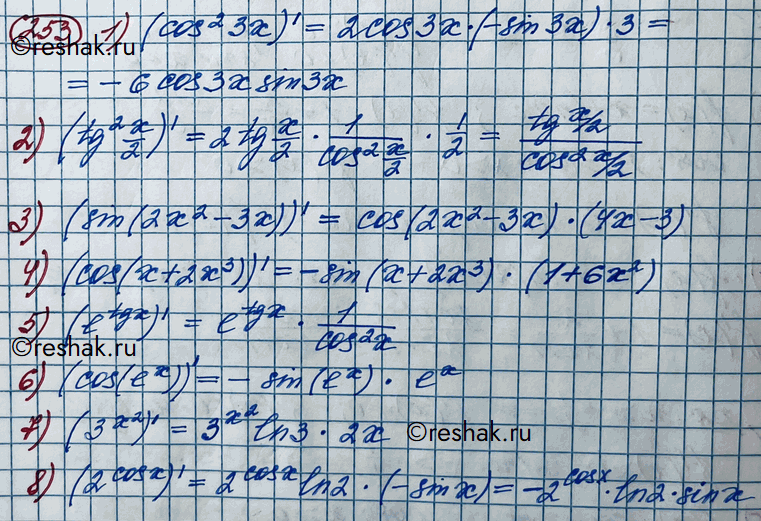 253 1) (cos² 3x)' = 2cos3x·(-sin3x)·3 =
= -6cos3x sin3x
©reshak.ru
2) (tg² x/2)' = 2 tg x/2 · 1/cos² x/2 · 1/2 = tg x/2 / cos² x/2
3) (sin(2x²-3x))' = cos(2x²-3x)·(4x-3)
4) (cos(x+2x³))' = -sin(x+2x³)·(1+6x²)
5) (e^tgx)' = e^tgx · 1/cos²x
©reshak.ru
6) (cos(e^x))' = -sin(e^x)·e^x
7) (3^x²)' = 3^x² ln3·2x ©reshak.ru
8) (2^cosx)' = 2^cosx ln2·(-sinx) = -2^cosx·ln2·sinx